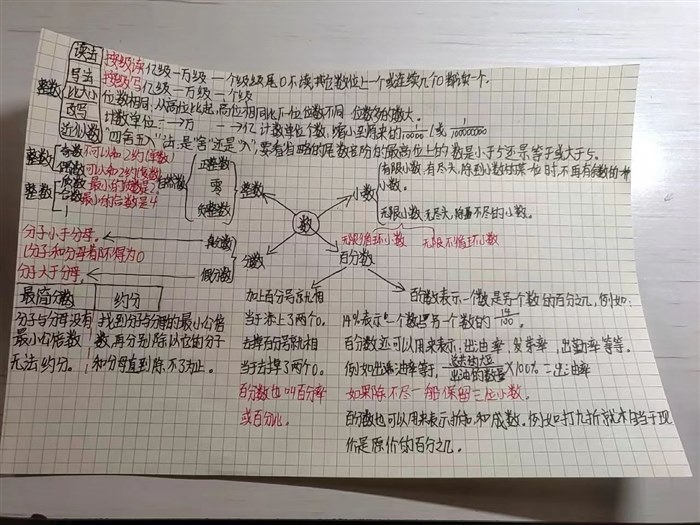 整数
读法 按级读 亿级一万级一个级 级尾0不读,其它数位上一个或连续几个0都读一个。
写法 按级写 亿级一万级一个级
比大小 位数相同,从高位比起,高位相同比下一位 位数不同 位数多的数大。
改写 计数单位 一→万 一→亿 计数单位个数,缩小到原来的1/10000或1/100000000
近似数 "四舍五入"法,是"舍"还是"入",要看省略的尾数部分的最高位上的数是小于5还是等于或大于5。
整数 奇数 不可以和2约(单数)
偶数 可以和2约(双数)
整数 质数 最小的质数是2
合数 最小的合数是4
1
正整数
零
负整数
整数
小数
有限小数,有尽头,除到小数的某一位时,不再有余数的一种
小数。
无限小数 无尽头,除不尽的小数。
无限循环小数 无限不循环小数
数
分数
百分数
分子小于分母。 真分数
(分子和分母都不得为0
分子大于分母。 假分数
最简分数 约分
分子与分母没有
最小公倍数
无法约分。
找到分子与分母的最小公倍
数,再分别除以它的分子
和分母直到除不了为止。
加上百分号就相
当于添上了两个0。
去掉百分号就相
当于去掉了两个0。
百分数也叫百分率
或百分比。
百分数表示一个数是另一个数的百分之几,例如:
14%表示"一个数占另一个数的14/100。
百分数还可以用来表示,出油率,发芽率,出勤率等等。
出油的数量×100%=出油率
如果除不尽一般保留三位小数。
百分数也可以用来表示折扣,和成数。例如打九折就相当于现
价是原价的百分之几。